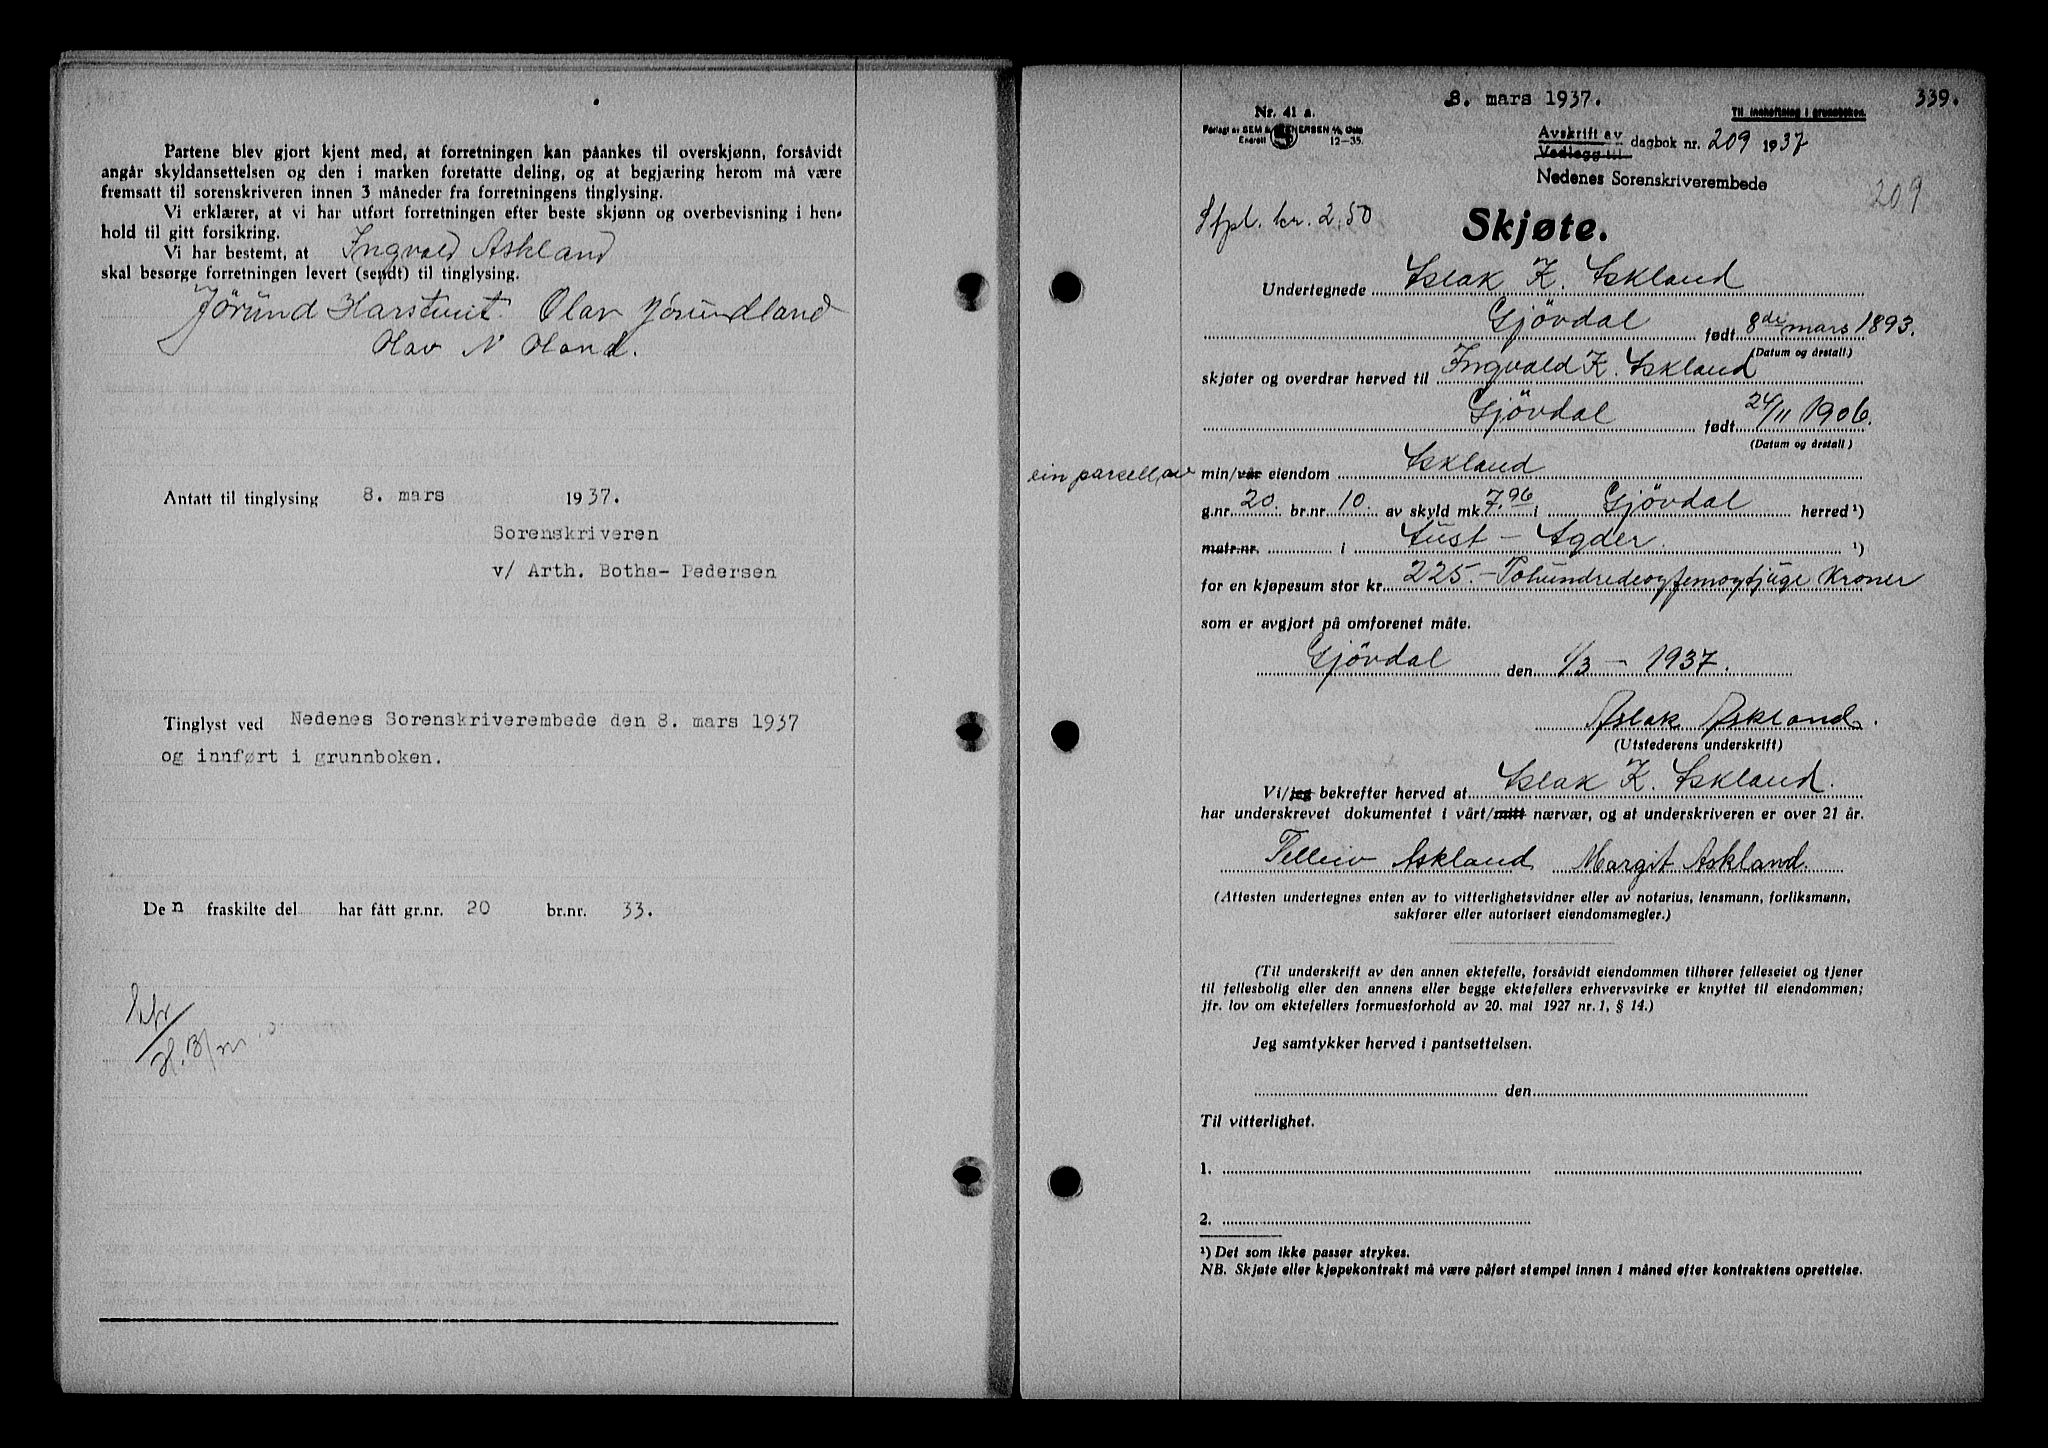 Partene blev gjort kjent med, at forretningen kan påankes til overskjønn, forsåvidt
angår skyldansettelsen og den i marken foretatte deling, og at begjæring herom må være
fremsatt til sorenskriveren innen 3 måneder fra forretningens tinglysing.
Vi erklærer, at vi har utført forretningen efter beste skjønn og overbevisning i hen-
hold til gitt forsikring.
Vi har bestemt, at Ingvald Askland
skal besørge forretningen levert (sendt) til tinglysing.
Jørund Harstveit. Olav Jørundland
Olav N Haand.
Antatt til tinglysing 8. mars 1937.
Sorenskriveren
v/ Arth. Botha-Pedersen
Tinglyst ved Nedenes Sorenskriverembede den 8. mars 1937
og innført i grunnboken.
Den fraskilte del har fått gr.nr. 20 br.nr. 33.
8. mars 1937.
339.
Nr. 41 a.
Forlagt av SEM & STENERSEN A/S, Oslo
Enerett 12-35.
Til innheftning i grunnboken.
Avskrift av
Vedlegg til dagbok nr. 209 1937
Nedenes Sorenskriverembede
209
Stpl. kr. 2,50
Skjøte.
Undertegnede Aslak K. Askland
Gjövdal født 8de mars 1893.
(Datum og årstall)
skjøter og overdrar herved til Ingvald K. Askland
Gjövdal født 24/11 1906.
(Datum og årstall)
ein parsell av min/vår eiendom Askland
g.nr. 20. br.nr. 10. av skyld mk. 7.96 i Gjövdal herred ¹)
matr.nr. i Aust-Agder. ¹)
for en kjøpesum stor kr. 225.- Tohundredeogfemogtjuge Kroner
som er avgjort på omforenet måte.
Gjövdal den 1/3 - 1937.
Aslak Askland.
(Utstederens underskrift)
Vi/jeg bekrefter herved at Aslak K. Askland.
har underskrevet dokumentet i vårt/mitt nærvær, og at underskriveren er over 21 år.
Telleiv Askland Margit Askland.
(Attesten undertegnes enten av to vitterlighetsvidner eller av notarius, lensmann, forliksmann,
sakfører eller autorisert eiendomsmegler.)
(Til underskrift av den annen ektefelle, forsåvidt eiendommen tilhører felleseiet og tjener
til fellesbolig eller den annens eller begge ektefellers erhvervsvirke er knyttet til eiendommen;
jfr. lov om ektefellers formuesforhold av 20. mai 1927 nr. 1, § 14.)
Jeg samtykker herved i pantsettelsen.
den
Til vitterlighet.
1.
2.
¹) Det som ikke passer strykes.
NB. Skjøte eller kjøpekontrakt må være påført stempel innen 1 måned efter kontraktens oprettelse.